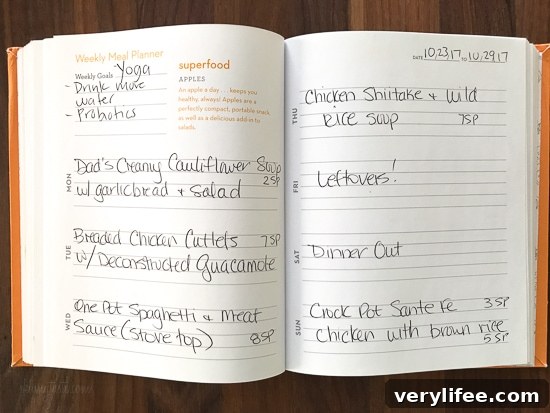 Weekly Meal Planner
Weekly Goals Yoga
- Drink more
water
- Probotics
superfood
APPLES
An apple a day . . . keeps you
healthy, always! Apples are a
perfectly compact, portable snack
as well as a delicious add-in to
salads.
MON
Dad's Creamy Cauliflower Soup
w/ garlicbread + salad 2SP
TUE
Breaded Chicken Cutlets 7SP
w/ Deconstructed Guacamole
WED
One Pot Spaghetti & Meat
Sauce (stove top) 8SP
DATE 10.23.17 TO 10.29.17
THU
Chicken Shiitake + Wild
Rice Soup 7SP
FRI
Leftovers!
SAT
Dinner Out
SUN
Crock Pot Sante Fe 3SP
Chicken with brown rice
5SP
verylifee.com